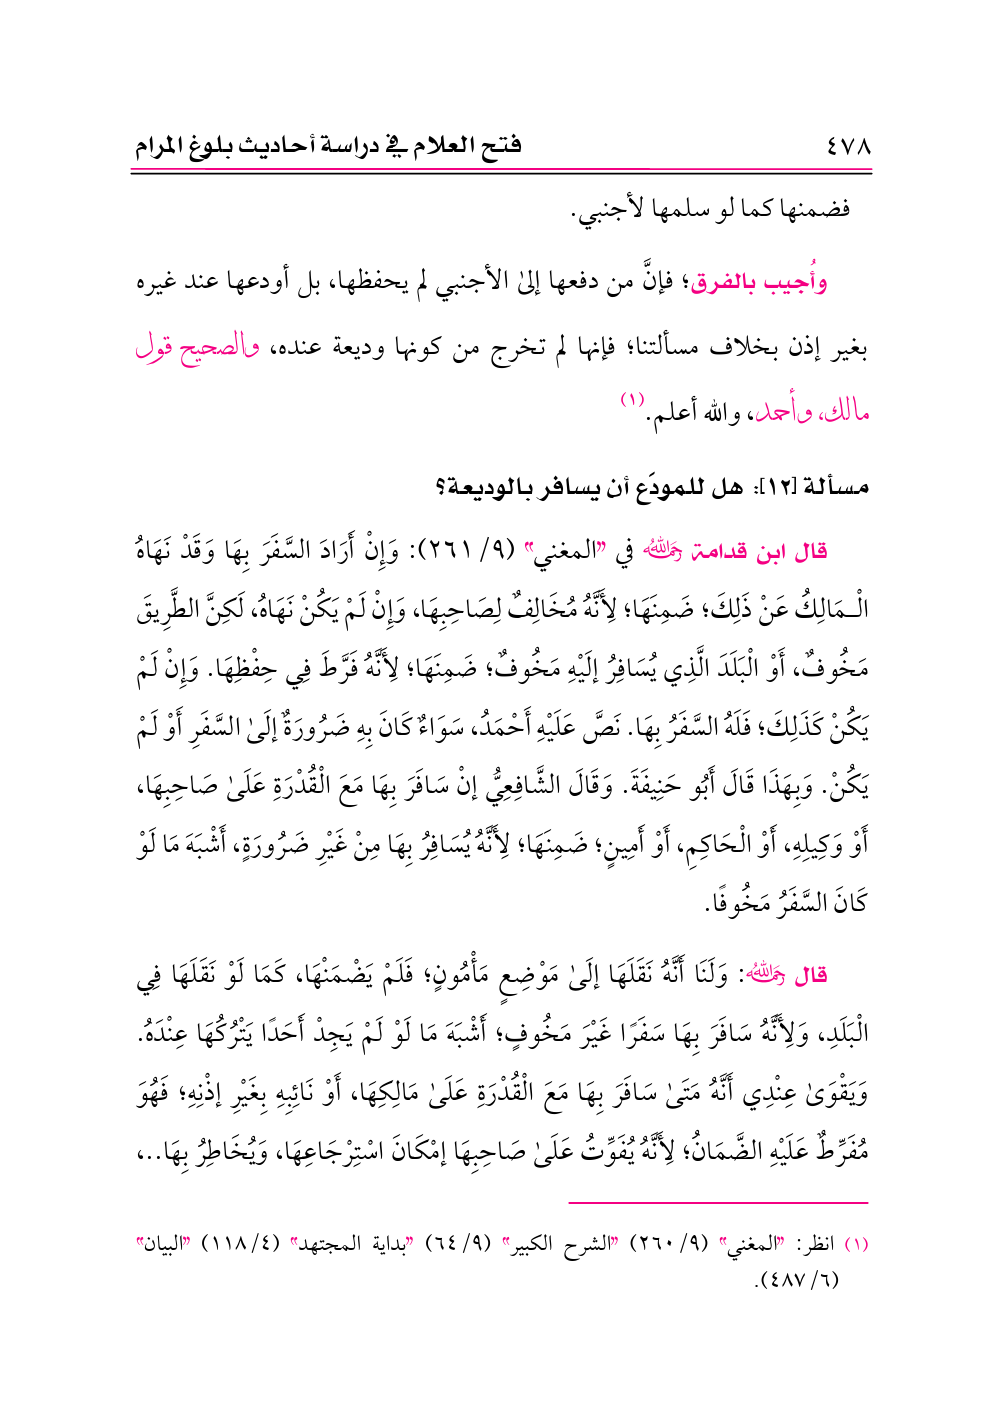 ٤٧٨ فتح العلام في دراسة أحاديث بلوغ المرام
فضمنها كما لو سلمها لأجنبي.
وأُجيب بالفرق؛ فإنَّ من دفعها إلىٰ الأجنبي لم يحفظها، بل أودعها عند غيره
بغير إذن بخلاف مسألتنا؛ فإنها لم تخرج من كونها وديعة عنده، والصحيح قول
مالك، وأحمد، والله أعلم.(١)
مسألة [١٢]: هل للمودَع أن يسافر بالوديعة؟
قال ابن قدامة رحمه الله في "المغني" (٩/ ٢٦١): وَإِنْ أَرَادَ السَّفَرَ بِهَا وَقَدْ نَهَاهُ
الْـمَالِكُ عَنْ ذَلِكَ؛ ضَمِنَهَا؛ لِأَنَّهُ مُخَالِفٌ لِصَاحِبِهَا، وَإِنْ لَمْ يَكُنْ نَهَاهُ، لَكِنَّ الطَّرِيقَ
مَخُوفٌ، أَوْ الْبَلَدَ الَّذِي يُسَافِرُ إلَيْهِ مَخُوفٌ؛ ضَمِنَهَا؛ لِأَنَّهُ فَرَّطَ فِي حِفْظِهَا. وَإِنْ لَمْ
يَكُنْ كَذَلِكَ؛ فَلَهُ السَّفَرُ بِهَا. نَصَّ عَلَيْهِ أَحْمَدُ، سَوَاءٌ كَانَ بِهِ ضَرُورَةٌ إلَىٰ السَّفَرِ أَوْ لَمْ
يَكُنْ. وَبِهَذَا قَالَ أَبُو حَنِيفَةَ. وَقَالَ الشَّافِعِيُّ إنْ سَافَرَ بِهَا مَعَ الْقُدْرَةِ عَلَىٰ صَاحِبِهَا،
أَوْ وَكِيلِهِ، أَوْ الْحَاكِمِ، أَوْ أَمِينٍ؛ ضَمِنَهَا؛ لِأَنَّهُ يُسَافِرُ بِهَا مِنْ غَيْرِ ضَرُورَةٍ، أَشْبَهَ مَا لَوْ
كَانَ السَّفَرُ مَخُوفًا.
قال رحمه الله: وَلَنَا أَنَّهُ نَقَلَهَا إلَىٰ مَوْضِعٍ مَأْمُونٍ؛ فَلَمْ يَضْمَنْهَا، كَمَا لَوْ نَقَلَهَا فِي
الْبَلَدِ، وَلِأَنَّهُ سَافَرَ بِهَا سَفَرًا غَيْرَ مَخُوفٍ؛ أَشْبَهَ مَا لَوْ لَمْ يَجِدْ أَحَدًا يَتْرُكُهَا عِنْدَهُ.
وَيَقْوَىٰ عِنْدِي أَنَّهُ مَتَىٰ سَافَرَ بِهَا مَعَ الْقُدْرَةِ عَلَىٰ مَالِكِهَا، أَوْ نَائِبِهِ بِغَيْرِ إذْنِهِ؛ فَهُوَ
مُفَرِّطٌ عَلَيْهِ الضَّمَانُ؛ لِأَنَّهُ يُفَوِّتُ عَلَىٰ صَاحِبِهَا إمْكَانَ اسْتِرْجَاعِهَا، وَيُخَاطِرُ بِهَا..،
(١) انظر: "المغني" (٩/ ٢٦٠) "الشرح الكبير" (٩/ ٦٤) "بداية المجتهد" (٤/ ١١٨) "البيان"
(٦/ ٤٨٧).